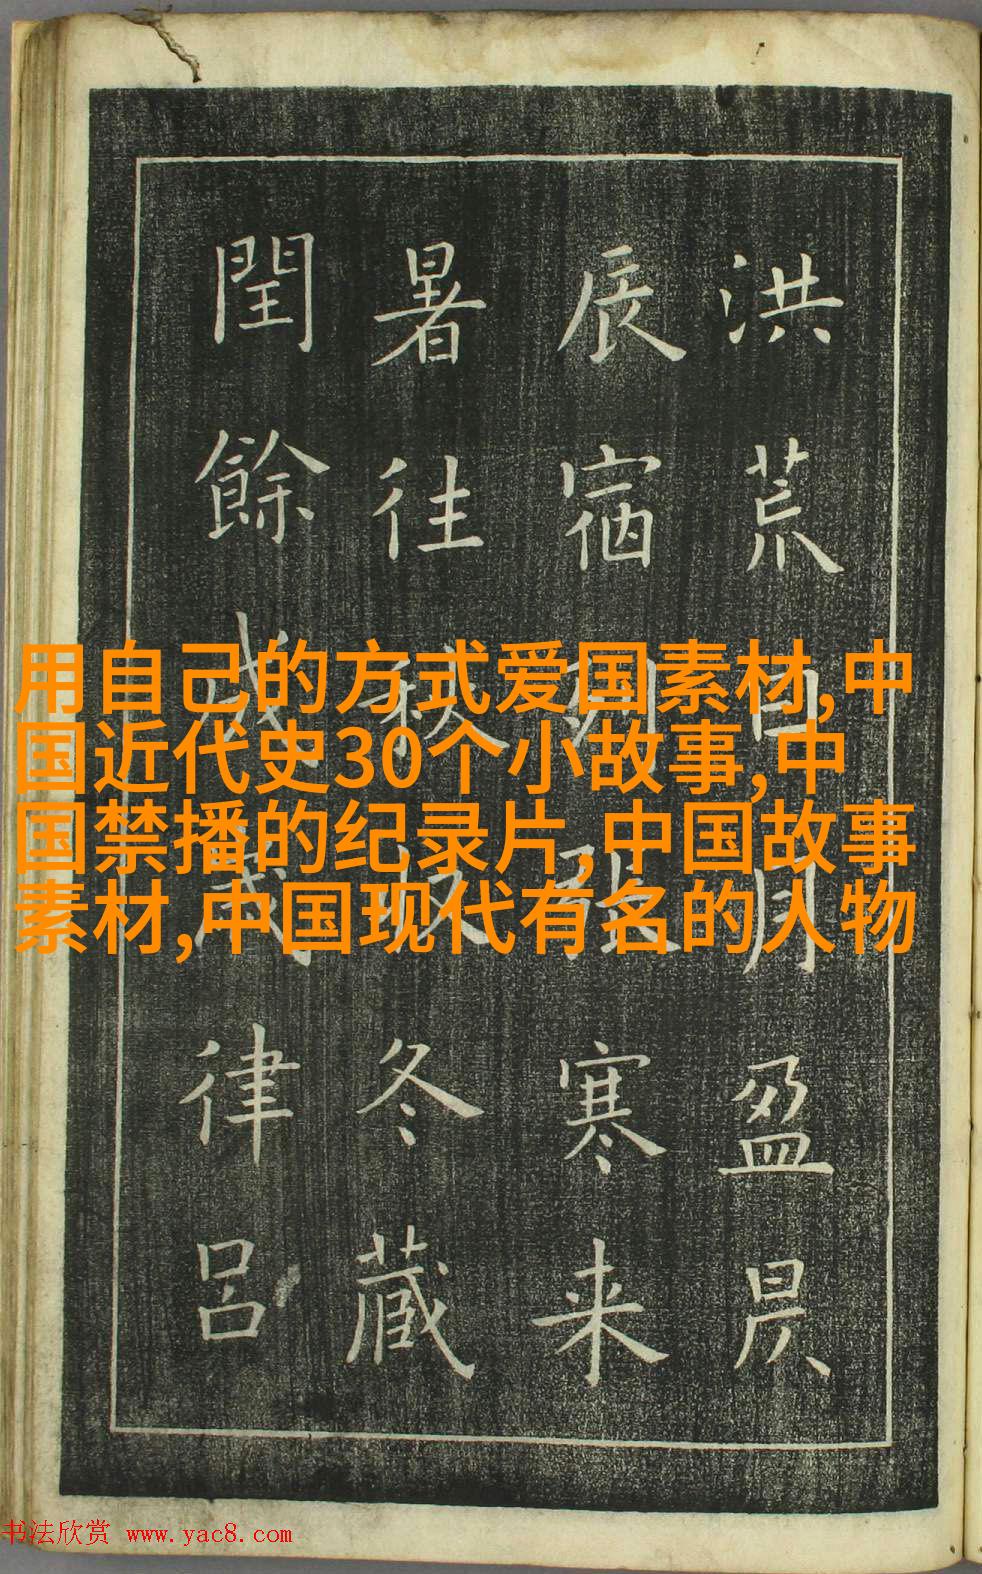 洪荒日月盈昃
辰宿列張寒来
暑往秋收冬藏
閏餘成歲律呂
用自己的方式爱国素材,中
国近代史30个小故事,中
国禁播的纪录片,中国故事
素材,中国现代有名的人物
书法欣赏 www.yac8.com